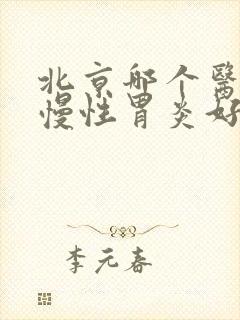 北京哪个醫
慢性胃炎好
李元春